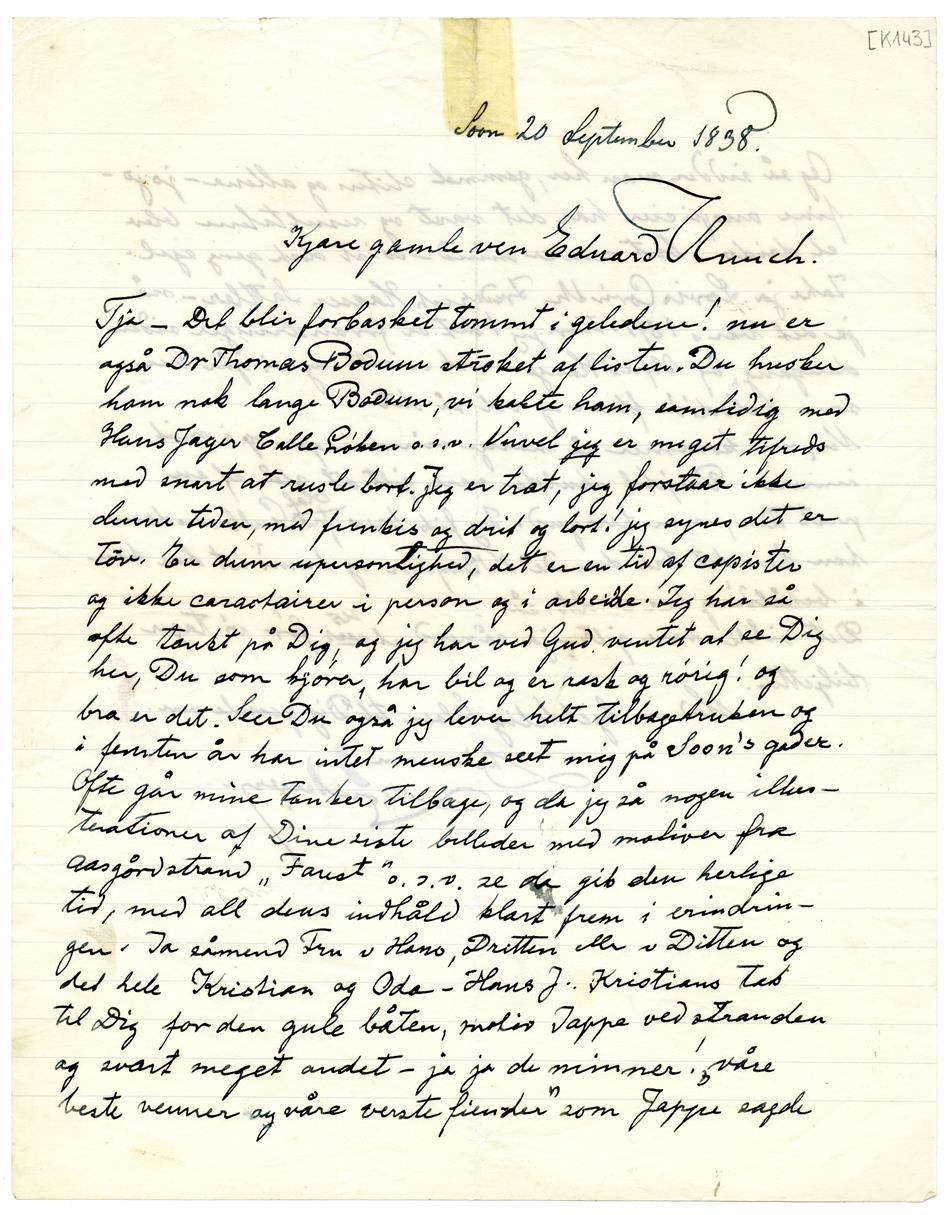 [K143]
Soon 20 September 1838.
Kjære gamle ven Edvard Munch.
Tja – Det blir forbasket tommt i geledene! nu er
også Dr Thomas Bodum strøket af listen. Du husker
ham nok lange Bodum, vi kalte ham, samtidig med
Hans Jæger Calle Løken o.s.v. Nuvel jeg er meget tilfreds
med snart at rusle bort. Jeg er træt, jeg forstaar ikke
denne tiden, med funkis og drit og lort! jeg synes det er
töv. En dum upersonlighed, det er en tid af copister
og ikke caractairer i person og i arbeide. Jeg har så
ofte tænkt på Dig, og jeg har ved Gud ventet at se Dig
her, Du som kjører, har bil og er rask og rörig! og
bra er det. Seer Du også jeg lever helt tilbagetruken og
i femten år har intet menske seet mig på Soon's gader.
Ofte går mine tanker tilbage, og da jeg så nogen illus-
terationer af Dine siste billeder med motiver fra
Aasgårdstrand „Faust" o.s.v. se da gik den herlige
tid, med all dens indhåld klart frem i erindrin-
gen. Ja såmend Fru v Hano, Dritten eller v Ditten og
det hele Kristian og Oda – Hans J. Kristians tak
til Dig for den gule båten, motiv Jappe ved stranden
og svært meget andet – ja ja de minner! „våre
beste venner og våre verste fiender" som Jappe sagde